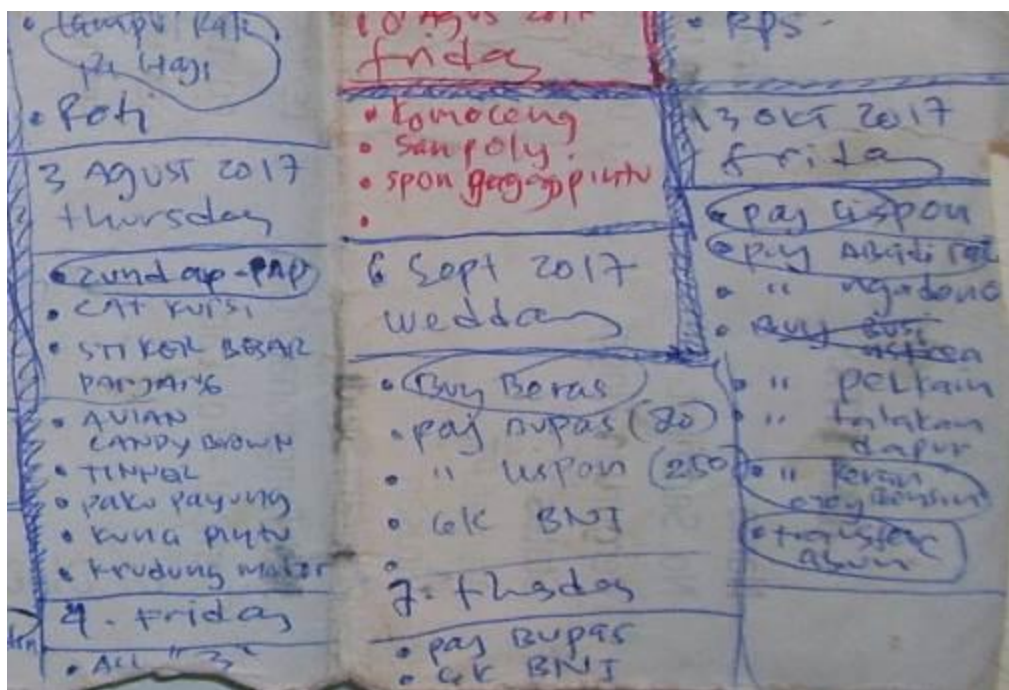 • lampu
• Roti
3 AGUST 2017
thursday
• zundap - PAP
• CAT KURSI
• STIKER BESAR
PANJANG
• AVIAN
CANDY BROWN
• TINNER
• paku payung
• kunci pintu
• krudung motor
4. Friday
• ALL "3"
10 Agus 2017
friday
• komoceng
• Sanpoly.
• spon gagang pintu
•
6 Sept 2017
wedday
• Buy Beras
• pay BUPAS (80)
• " uspon (250)
• cek BNI
•
7. thsday
• pay BUPAS
• cek BNI
• RPS -
13 OKT 2017
friday
• pay uspon
• pay ABADI
• "
• Buy
• " pel kain
• " talakan
dapur
• " keran
• transfer